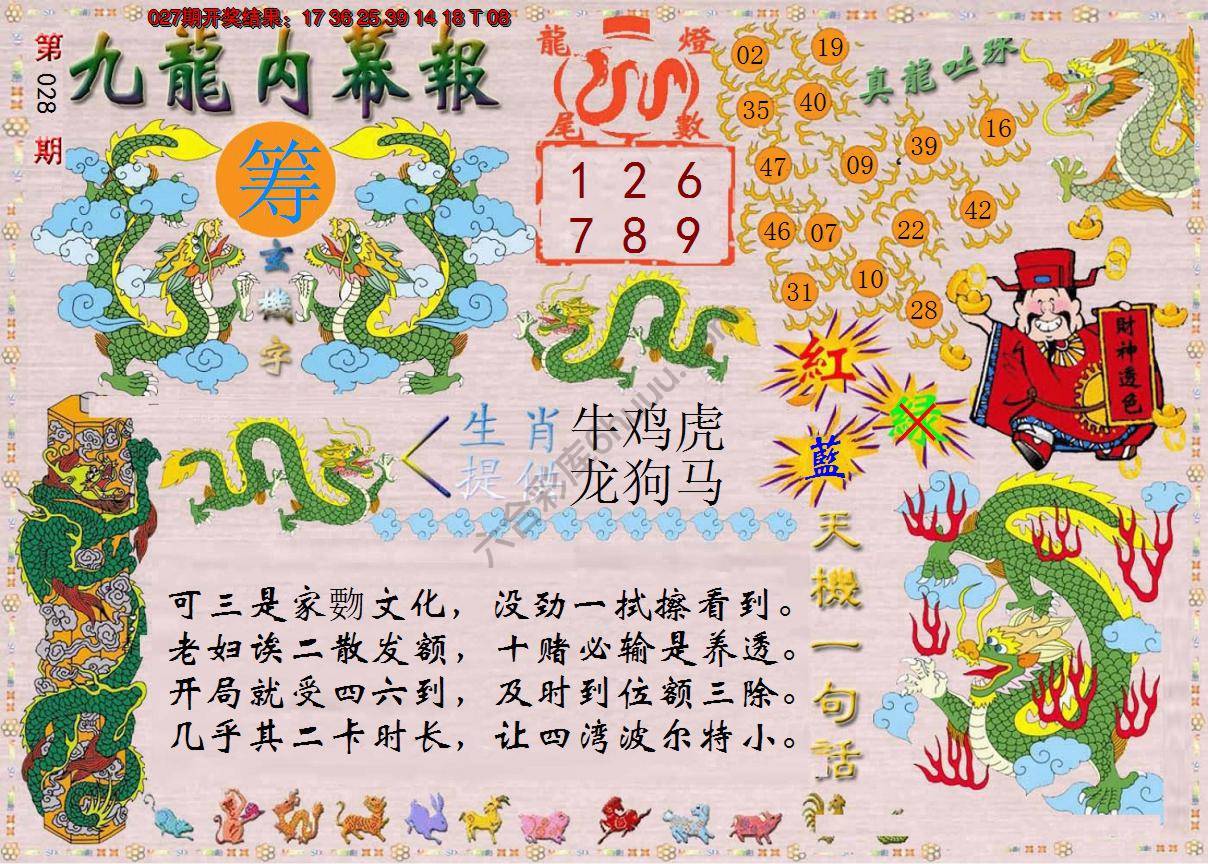 027期开奖结果：17 36 25 39 14 18 T 08
第028期
九龍内幕報
筹
玄機字
龍燈
尾數
1 2 6
7 8 9
真龍吐珠
02 19
35 40
39 16
47 09
46 07 22 42
31 10 28
財神透色
紅
绿
藍
生肖 牛鸡虎
提供 龙狗马
天機一句話
可三是家覅文化，没劲一拭擦看到。
老妇诶二散发额，十赌必输是养透。
开局就受四六到，及时到位额三除。
几乎其二卡时长，让四湾波尔特小。